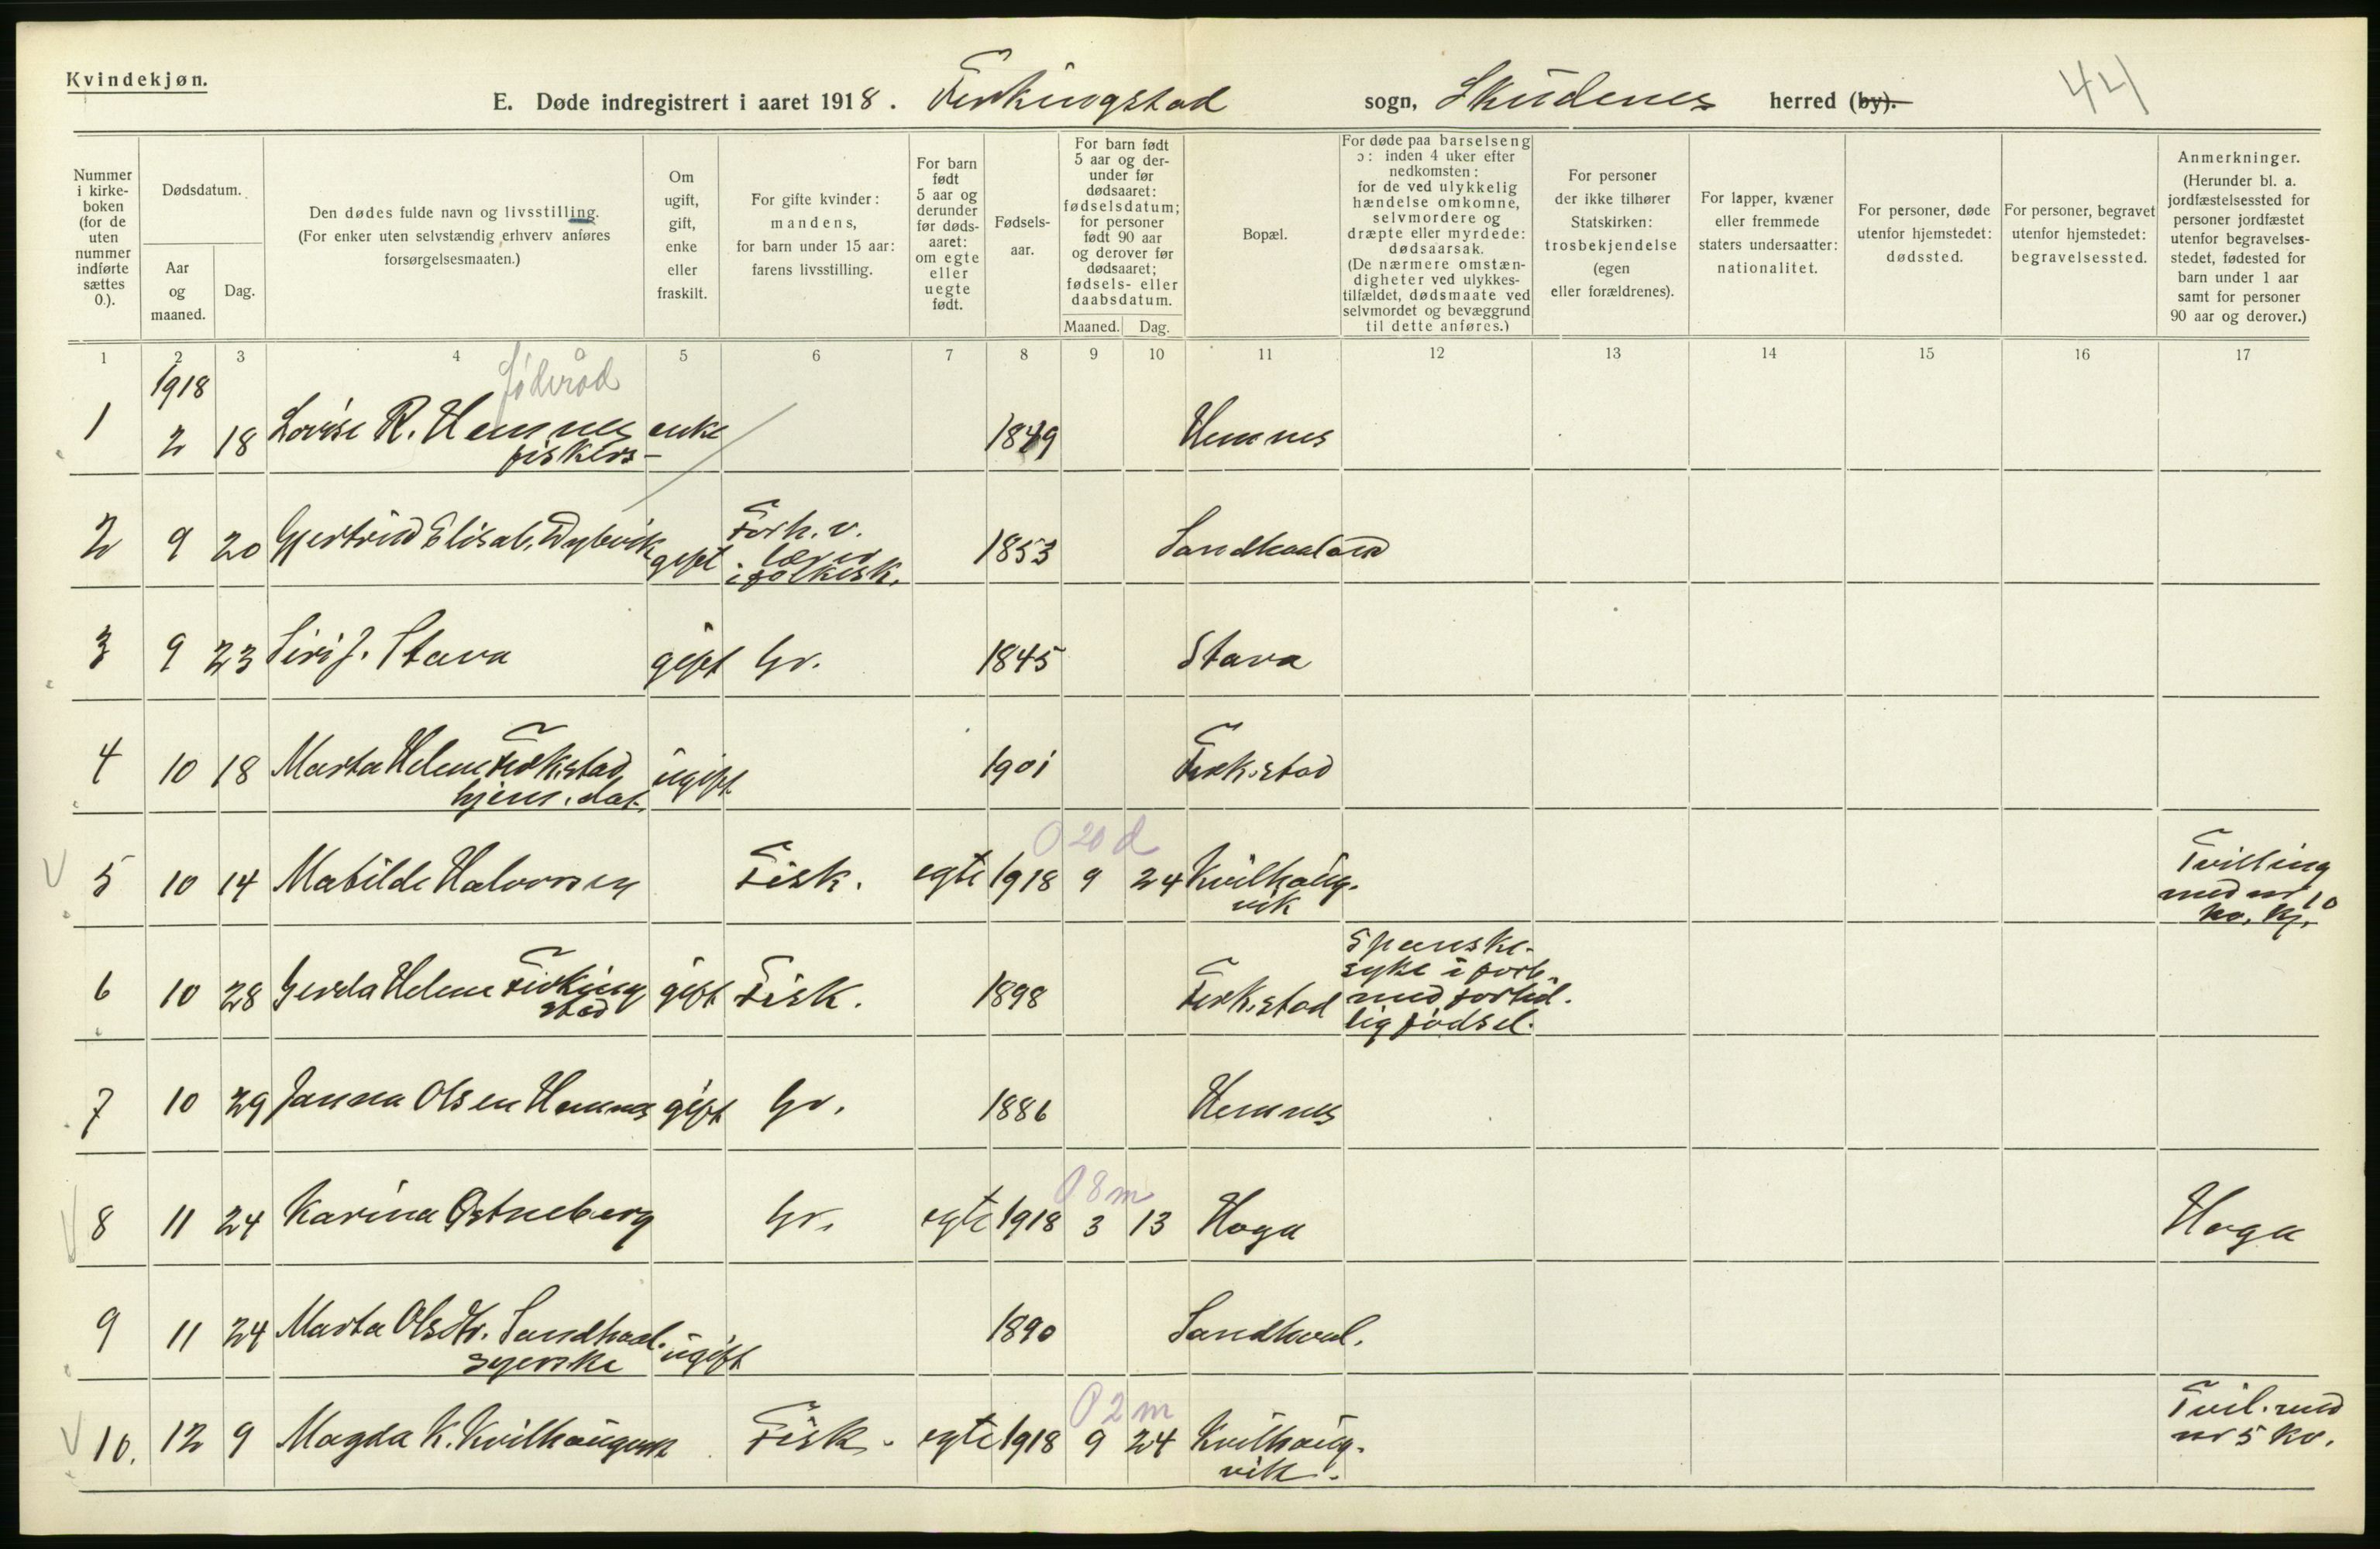 Kvindekjøn.
E. Døde indregistrert i aaret 1918. Ferkingstad sogn, Skudenes herred (by).
44
Nummer i kirkeboken (for de uten nummer indførte sættes 0.).
Dødsdatum.
Aar og maaned.
Dag.
Den dødes fulde navn og livsstilling.
(For enker uten selvstændig erhverv anføres
forsørgelsesmaaten.)
Om ugift, gift, enke eller fraskilt.
For gifte kvinder: mandens, for barn under 15 aar: farens livsstilling.
For barn født 5 aar og derunder før dødsaaret: om egte eller uegte født.
Fødselsaar.
For barn født 5 aar og derunder før dødsaaret: fødselsdatum; for personer født 90 aar og derover før dødsaaret; fødsels- eller daabsdatum.
Maaned. Dag.
Bopæl.
For døde paa barselseng ɔ: inden 4 uker efter nedkomsten: for de ved ulykkelig hændelse omkomne, selvmordere og dræpte eller myrdede: dødsaarsak. (De nærmere omstændigheter ved ulykkestilfældet, dødsmaate ved selvmordet og bevæggrund til dette anføres.)
For personer der ikke tilhører Statskirken: trosbekjendelse (egen eller forældrenes).
For lapper, kvæner eller fremmede staters undersaatter: nationalitet.
For personer, døde utenfor hjemstedet: dødssted.
For personer, begravet utenfor hjemstedet: begravelsessted.
Anmerkninger. (Herunder bl. a. jordfæstelsessted for personer jordfæstet utenfor begravelsesstedet, fødested for barn under 1 aar samt for personer 90 aar og derover.)
1 2 3 4 5 6 7 8 9 10 11 12 13 14 15 16 17
1918
føderåd
1 2 18 Lovise R. Hemnes enke 1849 Hemnes
fiskers-
2 9 20 Gjertrud Elisab. Dybvik gift Forh. v. lærer i folkesk. 1853 Sandhaaland
3 9 23 Siri J. Stava gift Gr. 1845 Stava
4 10 18 Marta Helene Ferk.stad ugift 1901 Ferk.stad
hjem. dat.
0 20 d
5 10 14 Matilde Halvorsen Fisk. egte 1918 9 24 Kvilhaug- Tvilling
vik med nr 10
kv. kj.
6 10 28 Gerda Helene Ferking gift Fisk. 1898 Ferk.stad Spanske-
stad syke i forb.
med fortid.
lig fødsel.
7 10 29 Janna Olsen Hemnes gift Gr. 1886 Hemnes
0 8 m
8 11 24 Karina Østneberg Gr. egte 1918 3 13 Haga Haga
9 11 24 Marta Olsdtr. Sandhaal. ugift 1890 Sandhaal.
syerske
0 2 m
10. 12 9 Magda K. Kvilhaugsvik Fisk. egte 1918 9 24 Kvilhaug- Tvil. med
vik. nr 5 kv.